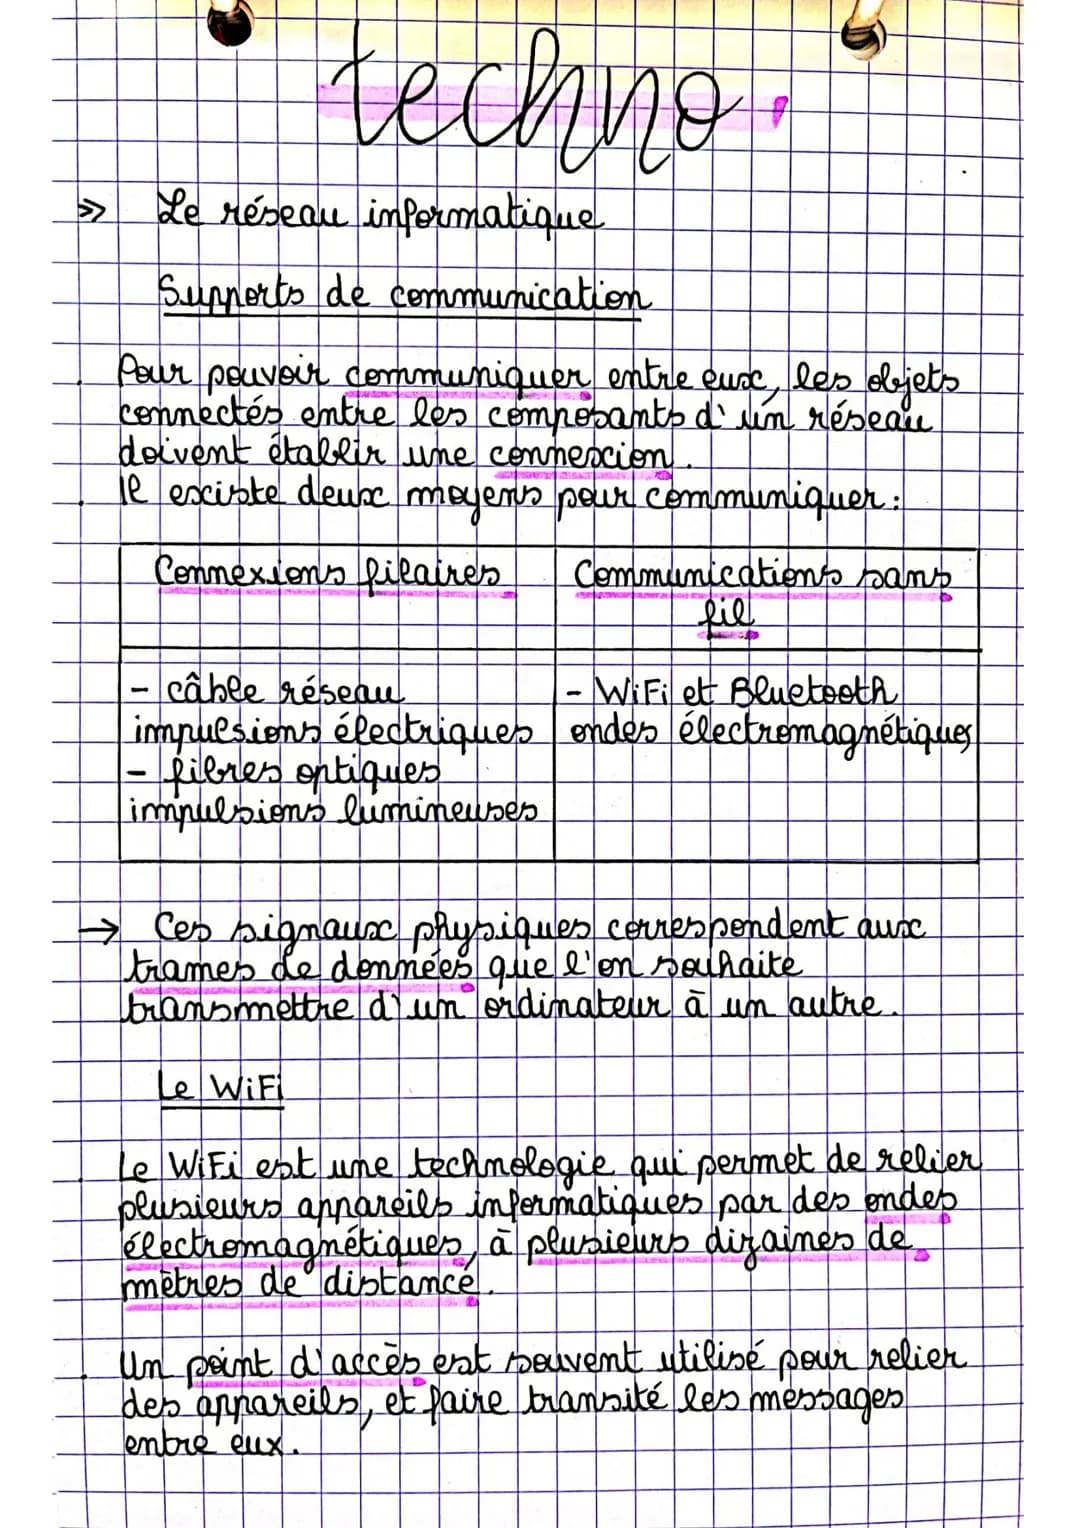 techno.
>> Le réseau informatique
Supports de communication
Pour pouvoir communiquer entre eux, les objets
connectés entre les composants d'un réseau
doivent établir une connexion.
Il existe deux moyens pour communiquer :
Connexions filaires
Communications sans
fil
- câble réseau
impulsions électriques
- fibres optiques
impulsions lumineuses
- WiFi et Bluetooth
ondes électromagnétiques
→ Ces signaux physiques correspondent aux
trames de données que l'on souhaite
transmettre d'un ordinateur à un autre.
Le WiFi
Le WiFi est une technologie qui permet de relier
plusieurs appareils informatiques par des ondes
électromagnétiques, à plusieurs dizaines de
mètres de distance.
Un point d'accès est souvent utilisé pour relier
des appareils, et faire transité les messages
entre eux.